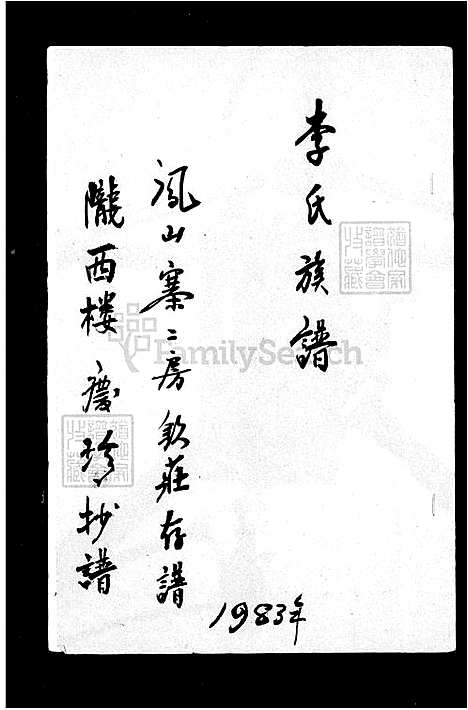 李氏族譜
凤山寨二房欽莊存譜
隴西楼慶珍抄譜
1983年
FamilySearch